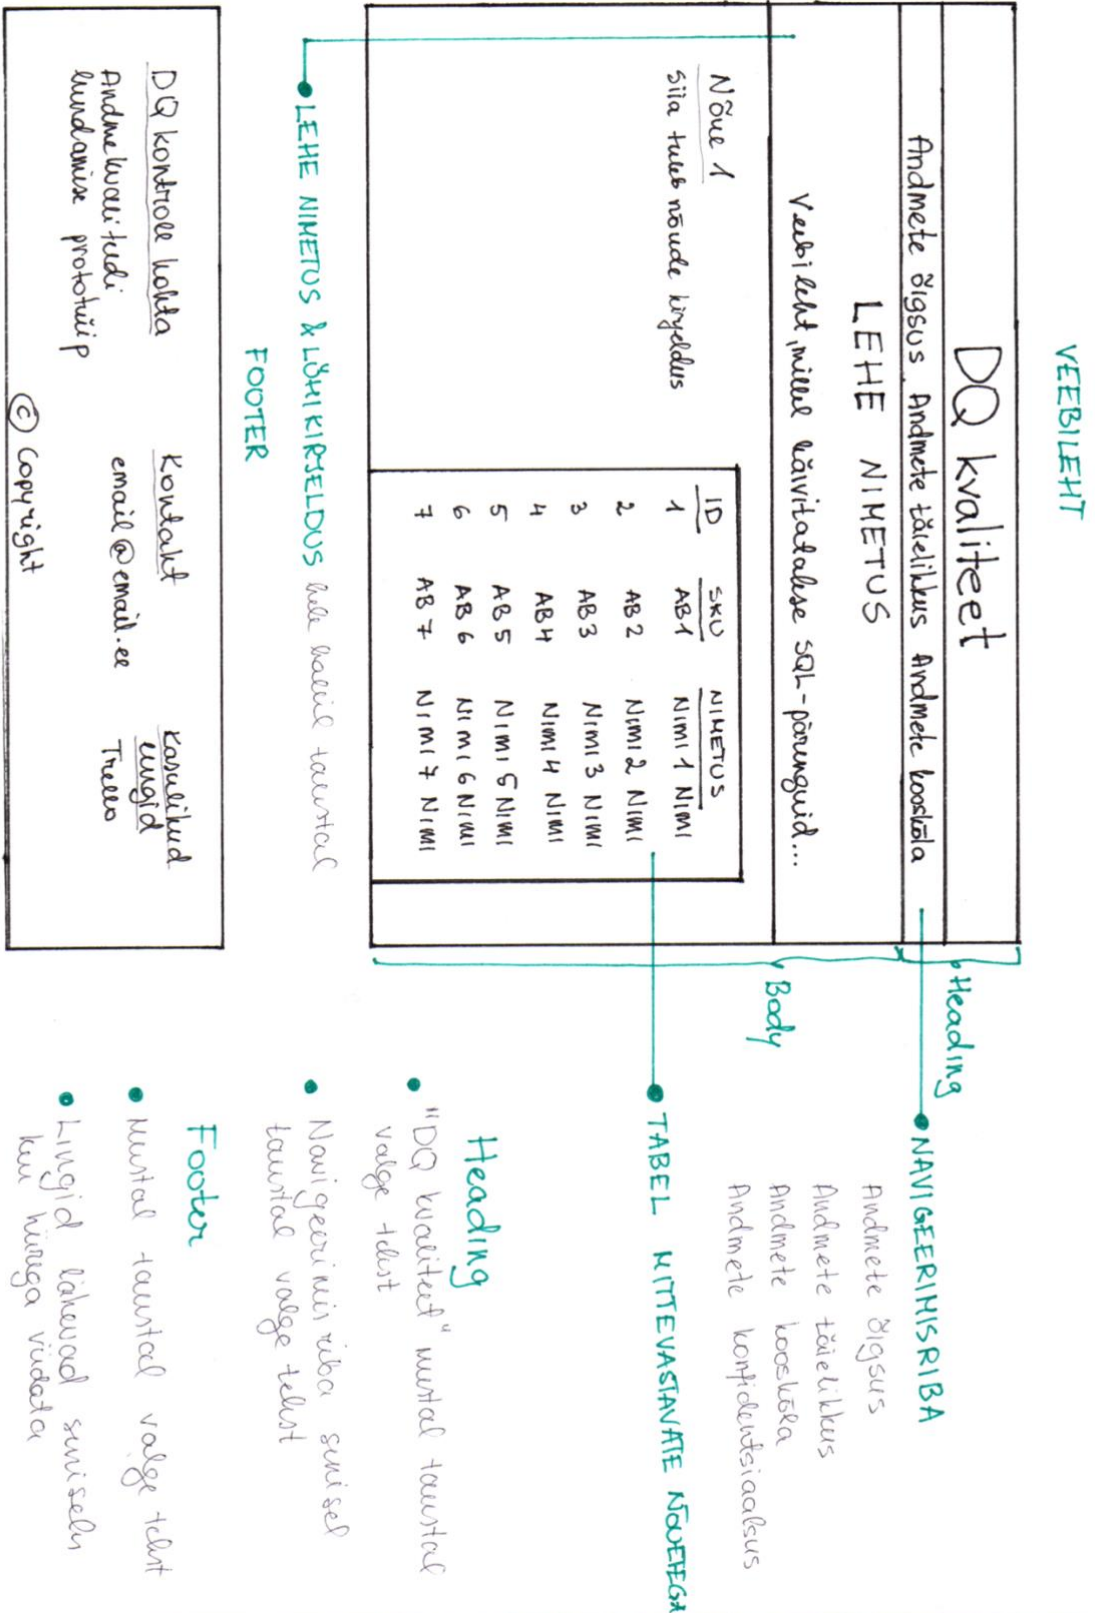 VEEBILEHT
DQ kvaliteet
Andmete õigsus Andmete täielikkus Andmete kooskõla
LEHE NIMETUS
Veebileht, millel käivitatakse SQL-päringuid...
Nõue 1
Siia tuleb nõude kirjeldus
ID SKU NIMETUS
1 AB1 NIMI 1 NIMI
2 AB2 NIMI 2 NIMI
3 AB3 NIMI 3 NIMI
4 AB4 NIMI 4 NIMI
5 AB5 NIMI 5 NIMI
6 AB6 NIMI 6 NIMI
7 AB7 NIMI 7 NIMI
Heading
Body
LEHE NIMETUS & LÜHIKIRJELDUS hele hallil taustal
FOOTER
DQ kontroll kohta
Andmekvaliteedi
hindamise prototüüp
Kontakt
email@email.ee
Kasulikud
lingid
Trello
© Copyright
NAVIGEERIMISRIBA
Andmete õigsus
Andmete täielikkus
Andmete kooskõla
Andmete konfidentsiaalsus
TABEL MITTEVASTAVATE NÕUETEGA
Heading
"DQ kvaliteet" mustal taustal
valge tekst
Navigeerimisriba sinisel
taustal valge tekst
Footer
Mustal taustal valge tekst
Lingid lähevad siniseks
kui hiirega viidata